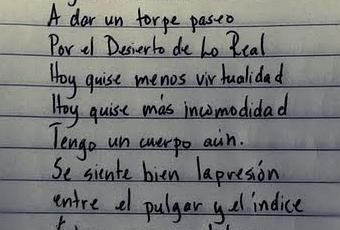 A dar un torpe paseo
Por el Desierto de Lo Real
Hoy quise menos virtualidad
Hoy quise más incomodidad
Tengo un cuerpo aún.
Se siente bien la presión
entre el pulgar y el índice